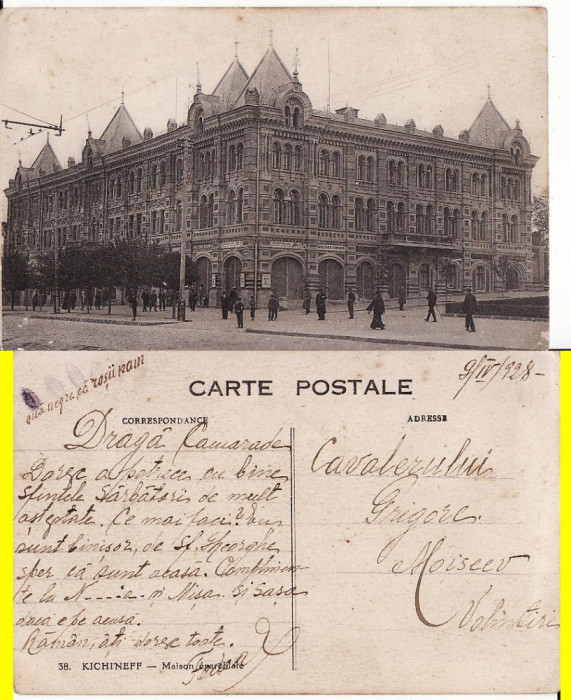 ouă negre că roșii n'am
CARTE POSTALE
9/IV/928-
CORRESPONDANCE
ADRESSE
Dragă Camarade
Doresc a petrece cu bine
sfintele sărbători de mult
așteptate. Ce mai faci? Eu
sunt binișor, de Sf. Gheorghe
sper că sunt acasă. Complimen
te la N----a și Mișa și Sașa
daca e pe acasă.
Rămân, âți doresc toate.
Cavalerului
Grigore
Moiseev
Volintiri
38. KICHINEFF — Maison éparchiale